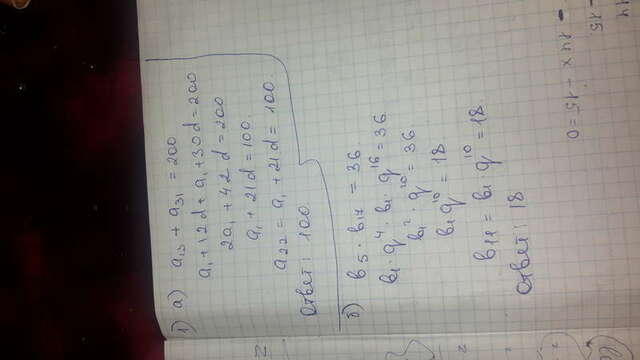 1) а) a₁₃ + a₃₁ = 200
a₁ + 12d + a₁ + 30d = 200
2a₁ + 42d = 200
a₁ + 21d = 100
a₂₂ = a₁ + 21d = 100.
Ответ: 100
б) b₅ · b₁₇ = 36
b₁ · q⁴ · b₁ · q¹⁶ = 36
b₁² · q²⁰ = 36
b₁ q¹⁰ = 18
b₁₁ = b₁ q¹⁰ = 18
Ответ: 18
14x - 15 = 0